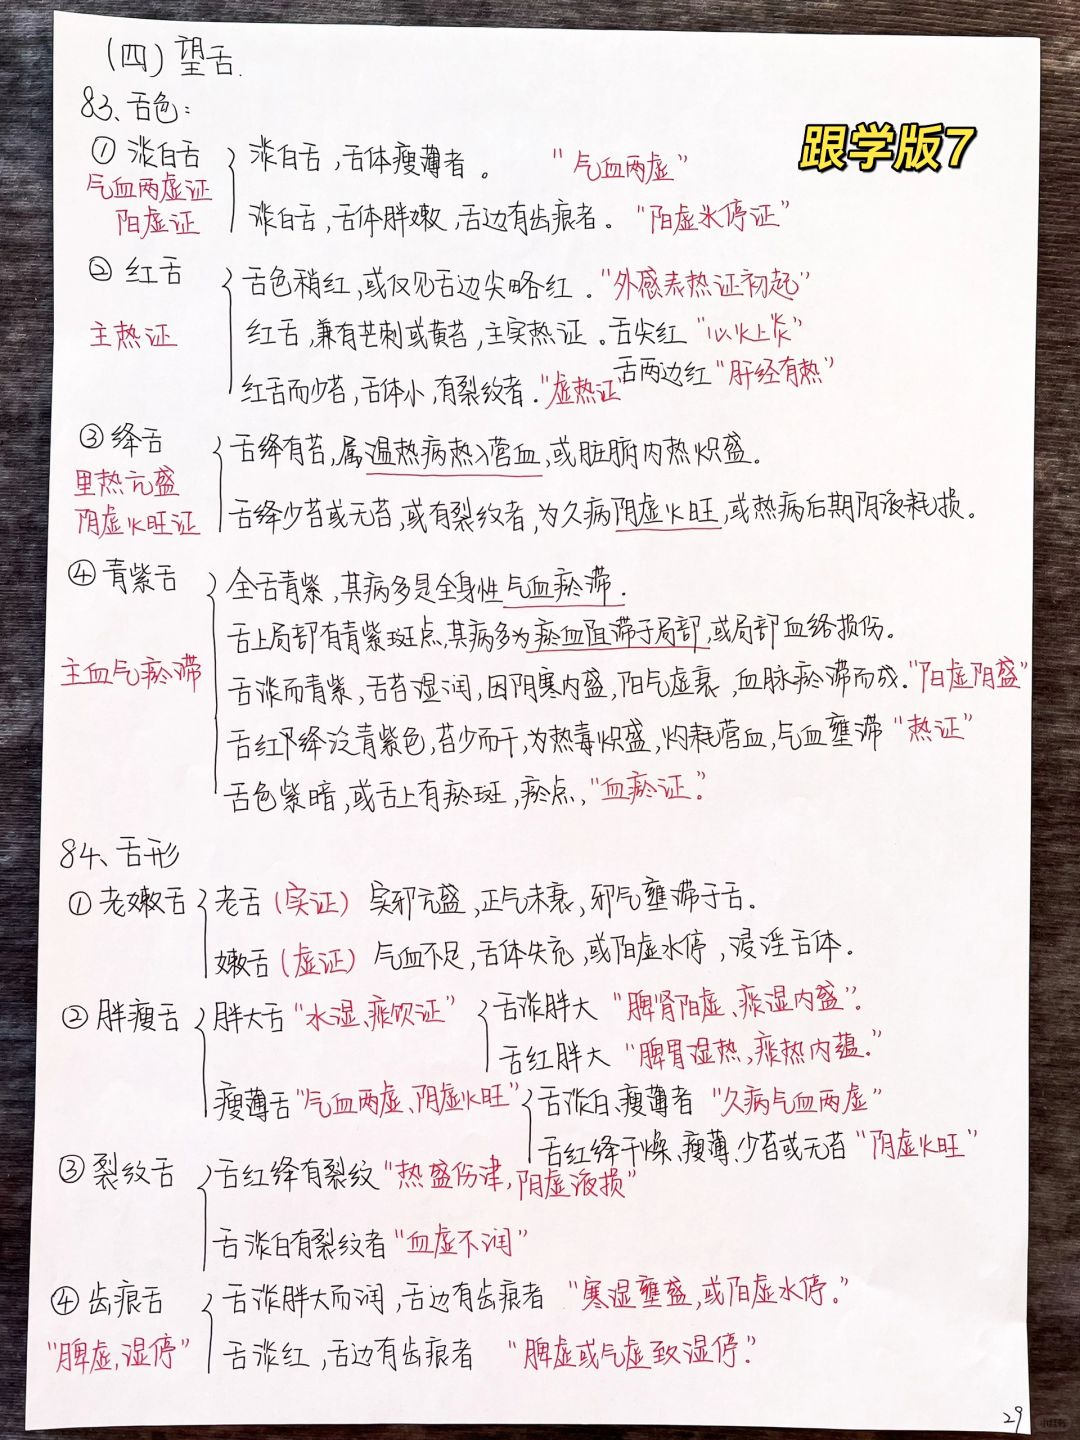 (四)望舌.
83、舌色:
跟学版7
①淡白舌
气血两虚证
阳虚证
淡白舌,舌体瘦薄者。 "气血两虚"
淡白舌,舌体胖嫩,舌边有齿痕者。"阳虚水停证"
②红舌
主热证
舌色稍红,或仅见舌边尖略红."外感表热证初起"
红舌,兼有芒刺或黄苔,主实热证.舌尖红"心火上炎"
舌两边红"肝经有热"
红舌而少苔,舌体小,有裂纹者."虚热证"
③绛舌
里热亢盛
阴虚火旺证
舌绛有苔,属温热病热入营血,或脏腑内热炽盛。
舌绛少苔或无苔,或有裂纹者,为久病阴虚火旺,或热病后期阴液耗损。
④青紫舌
主血气瘀滞
全舌青紫,其病多是全身性气血瘀滞.
舌上局部有青紫斑点,其病多为瘀血阻滞于局部,或局部血络损伤。
舌淡而青紫,舌苔湿润,因阴寒内盛,阳气虚衰,血脉瘀滞而成."阳虚阴盛"
舌红下绛泛青紫色,苔少而干,为热毒炽盛,灼耗营血,气血壅滞"热证"
舌色紫暗,或舌上有瘀斑,瘀点,"血瘀证."
84、舌形
①老嫩舌
老舌(实证)实邪亢盛,正气未衰,邪气壅滞于舌。
嫩舌(虚证)气血不足,舌体失充,或阳虚水停,浸淫舌体.
②胖瘦舌
胖大舌"水湿、痰饮证"
舌淡胖大 "脾肾阳虚、痰湿内盛".
舌红胖大 "脾胃湿热,痰热内蕴."
瘦薄舌"气血两虚、阴虚火旺"
舌淡白、瘦薄者 "久病气血两虚"
舌红绛干燥、瘦薄、少苔或无苔"阴虚火旺"
③裂纹舌
舌红绛有裂纹"热盛伤津,阴虚液损"
舌淡白有裂纹者"血虚不润"
④齿痕舌
"脾虚,湿停"
舌淡胖大而润,舌边有齿痕者 "寒湿壅盛,或阳虚水停."
舌淡红,舌边有齿痕者 "脾虚或气虚致湿停."
29
小红书